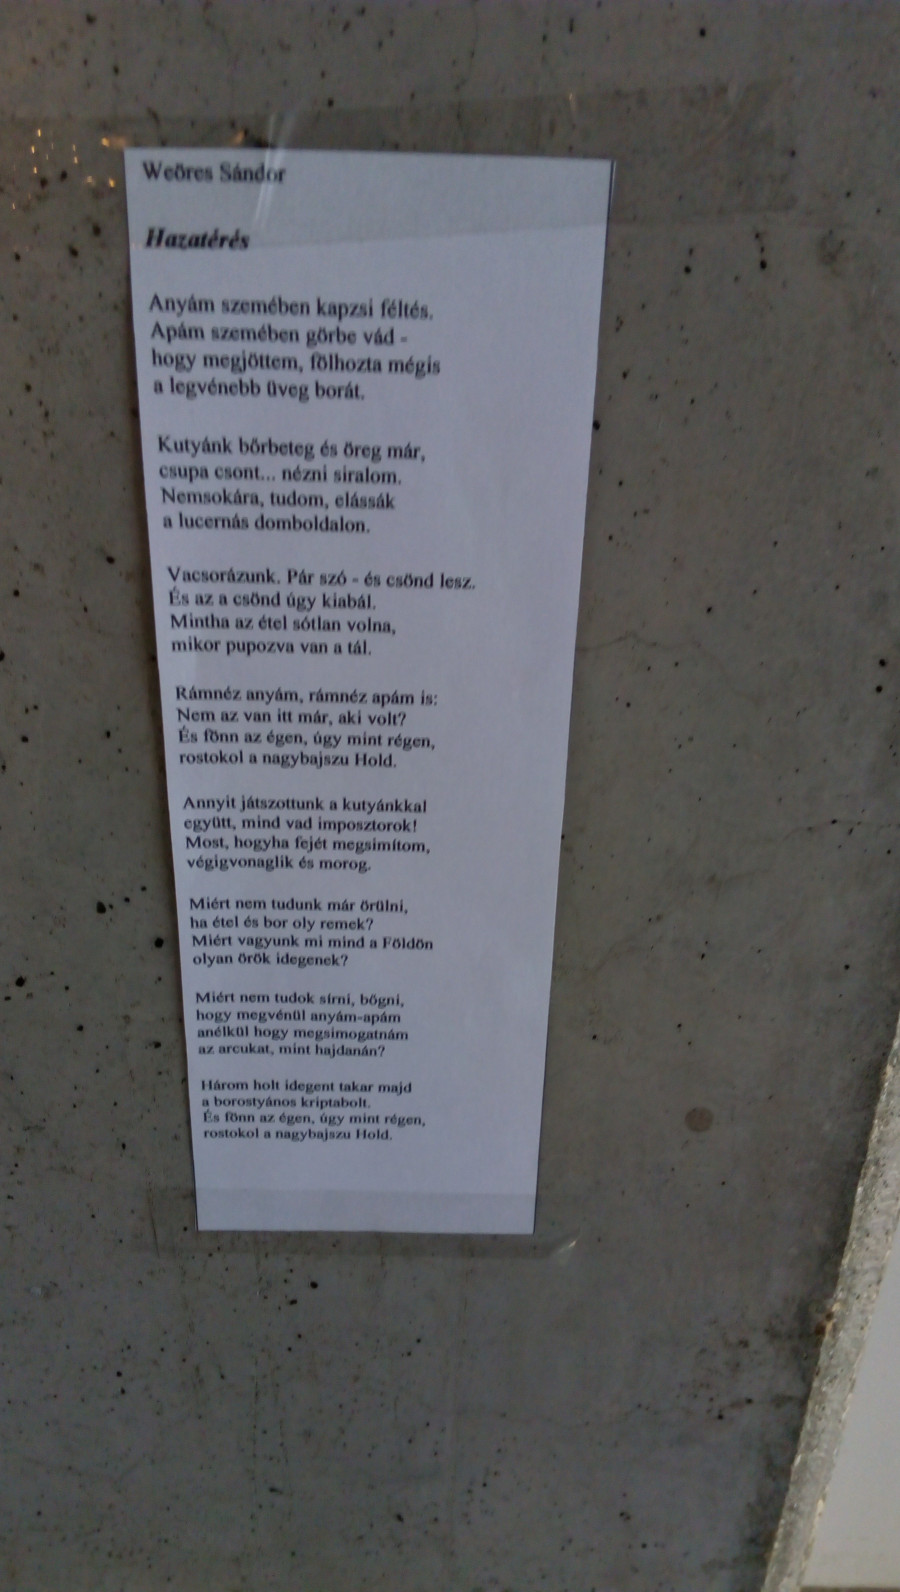 Weöres Sándor
Hazatérés
Anyám szemében kapzsi féltés.
Apám szemében görbe vád -
hogy megjöttem, fölhozta mégis
a legvénebb üveg borát.
Kutyánk bőrbeteg és öreg már,
csupa csont... nézni siralom.
Nemsokára, tudom, elássák
a lucernás domboldalon.
Vacsorázunk. Pár szó - és csönd lesz.
És az a csönd úgy kiabál.
Mintha az étel sótlan volna,
mikor pupozva van a tál.
Rámnéz anyám, rámnéz apám is:
Nem az van itt már, aki volt?
És fönn az égen, úgy mint régen,
rostokol a nagybajszu Hold.
Annyit játszottunk a kutyánkkal
együtt, mind vad imposztorok!
Most, hogyha fejét megsimítom,
végigvonaglik és morog.
Miért nem tudunk már örülni,
ha étel és bor oly remek?
Miért vagyunk mi mind a Földön
olyan örök idegenek?
Miért nem tudok sírni, bőgni,
hogy megvénül anyám-apám
anélkül hogy megsimogatnám
az arcukat, mint hajdanán?
Három holt idegent takar majd
a borostyános kriptabolt.
És fönn az égen, úgy mint régen,
rostokol a nagybajszu Hold.